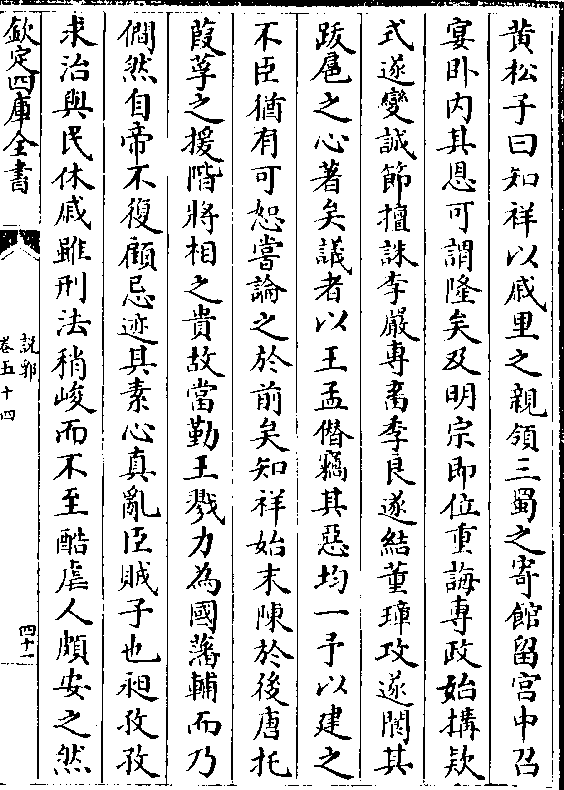 黄松子曰知祥以戚里之親領三蜀之寄館留宫中召
宴卧内其恩可謂隆矣及明宗即位重誨專政始搆欵
式遂變誠節擅誅李嚴專畜季良遂結董璋攻遂閬其
跋扈之心著矣議者以王孟僣竊其惡均一予以建之
不臣猶有可恕嘗論之於前矣知祥始末陳於後唐托
葭莩之援階將相之貴故當勤王戮力為國藩輔而乃
僩然自帝不復顧忌迹其素心真亂臣賊子也昶孜孜
求治與民休戚雖刑法稍峻而不至酷虐人頗安之然
欽定四庫全書
説郛
卷五十四
四十一